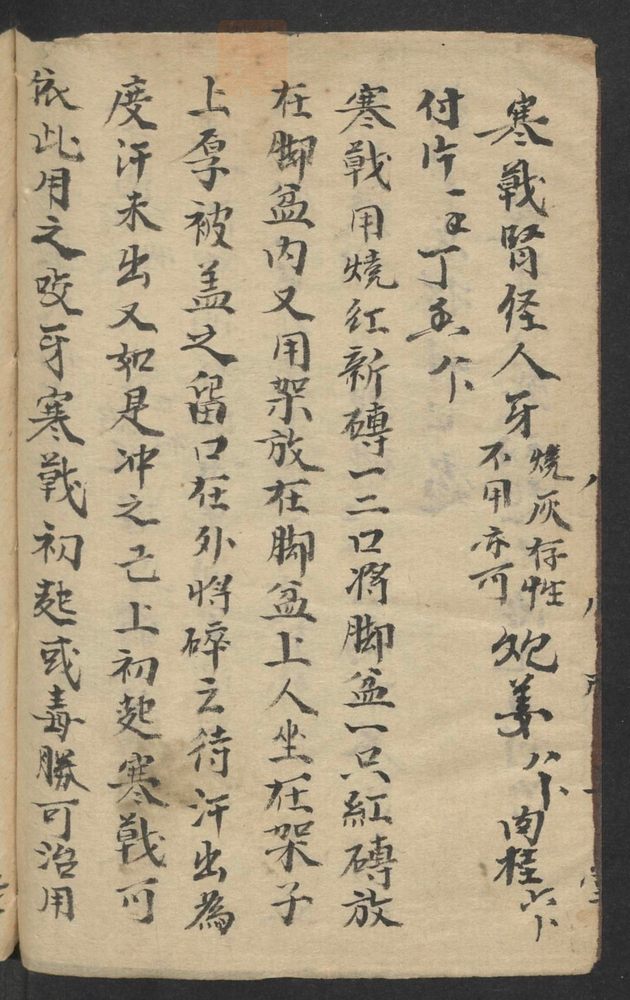 寒戰腎經人牙燒灰存性不用亦可炮姜八卜肉桂六卜
付片一丁五卜
寒戰用燒紅新磚一二口將脚盆一只紅磚放
在脚盆内又用架放在脚盆上人坐在架子
上厚被盖之留口在外將碎之待汗出為
度汗未出又如是冲之已上初起寒戰可
依此用之咬牙寒戰初起或毒勝可治用